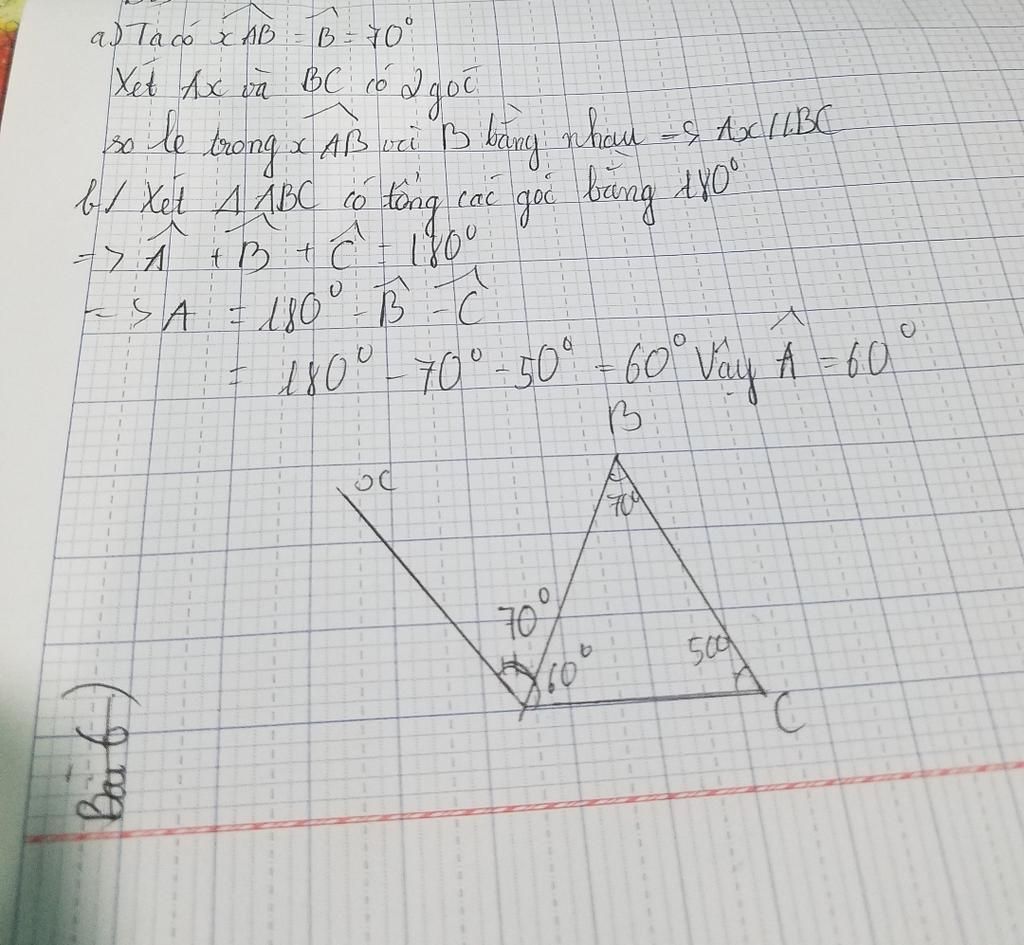 a) Ta có xAB = B = 70°
Xét Ax và BC có 2 góc
so le trong xAB với B bằng nhau => Ax // BC
b/ Xét Δ ABC có tổng các góc bằng 180°
=> A + B + C = 180°
=> A = 180° - B - C
= 180° - 70° - 50° = 60° Vậy A = 60°
B
x
70°
70°
60°
50°
C
Bài 6)